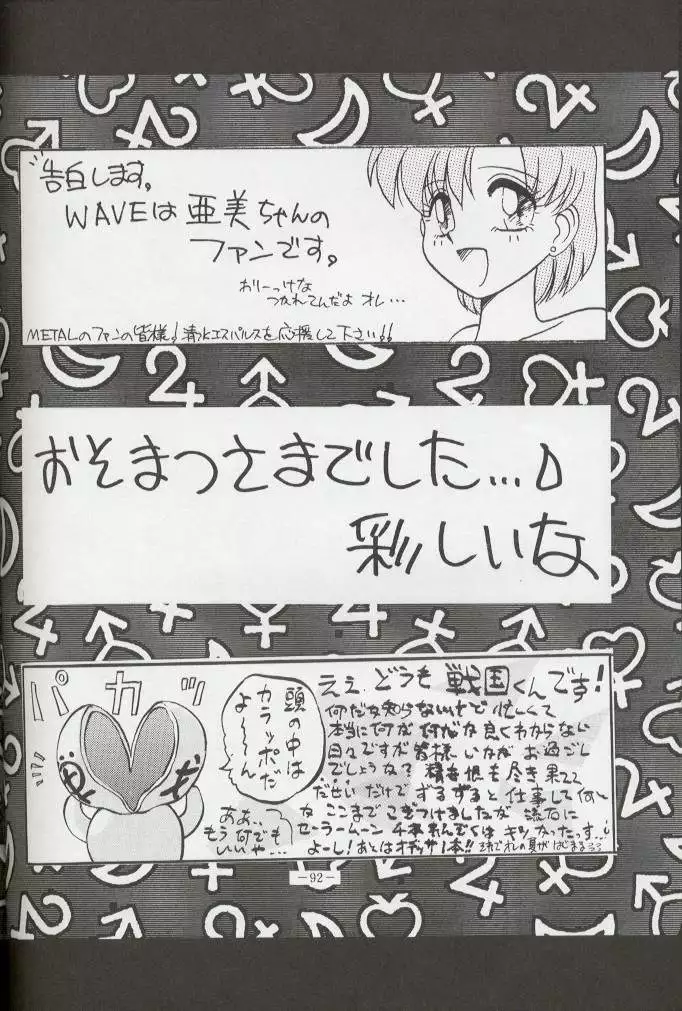 告白します。
WAVEは亜美ちゃんの
ファンです。
おりーっけな
つかれてんだよ オレ…
METALのファンの皆様！清水エスパルスを応援して下さい!!
おそまつさまでした…♪
彩しいな
パカッ
頭の中は
カラッポだ
よ〜〜ん
ああ..
もう何でも
いいや…
ええ、どうも戦国くんです！
何だか知らないけど忙しくて
本当に何が何だか良くわからない
日々ですが皆様いかがお過ごし
でしょうか？ 精も根も尽き果てて
だせいだけでずるずると仕事して何と
かここまでこぎつけましたが流石に
セーラームーン
はキツかったっす…
よーし！あとは
1本!! これでオレの夏がはじまる
－92－